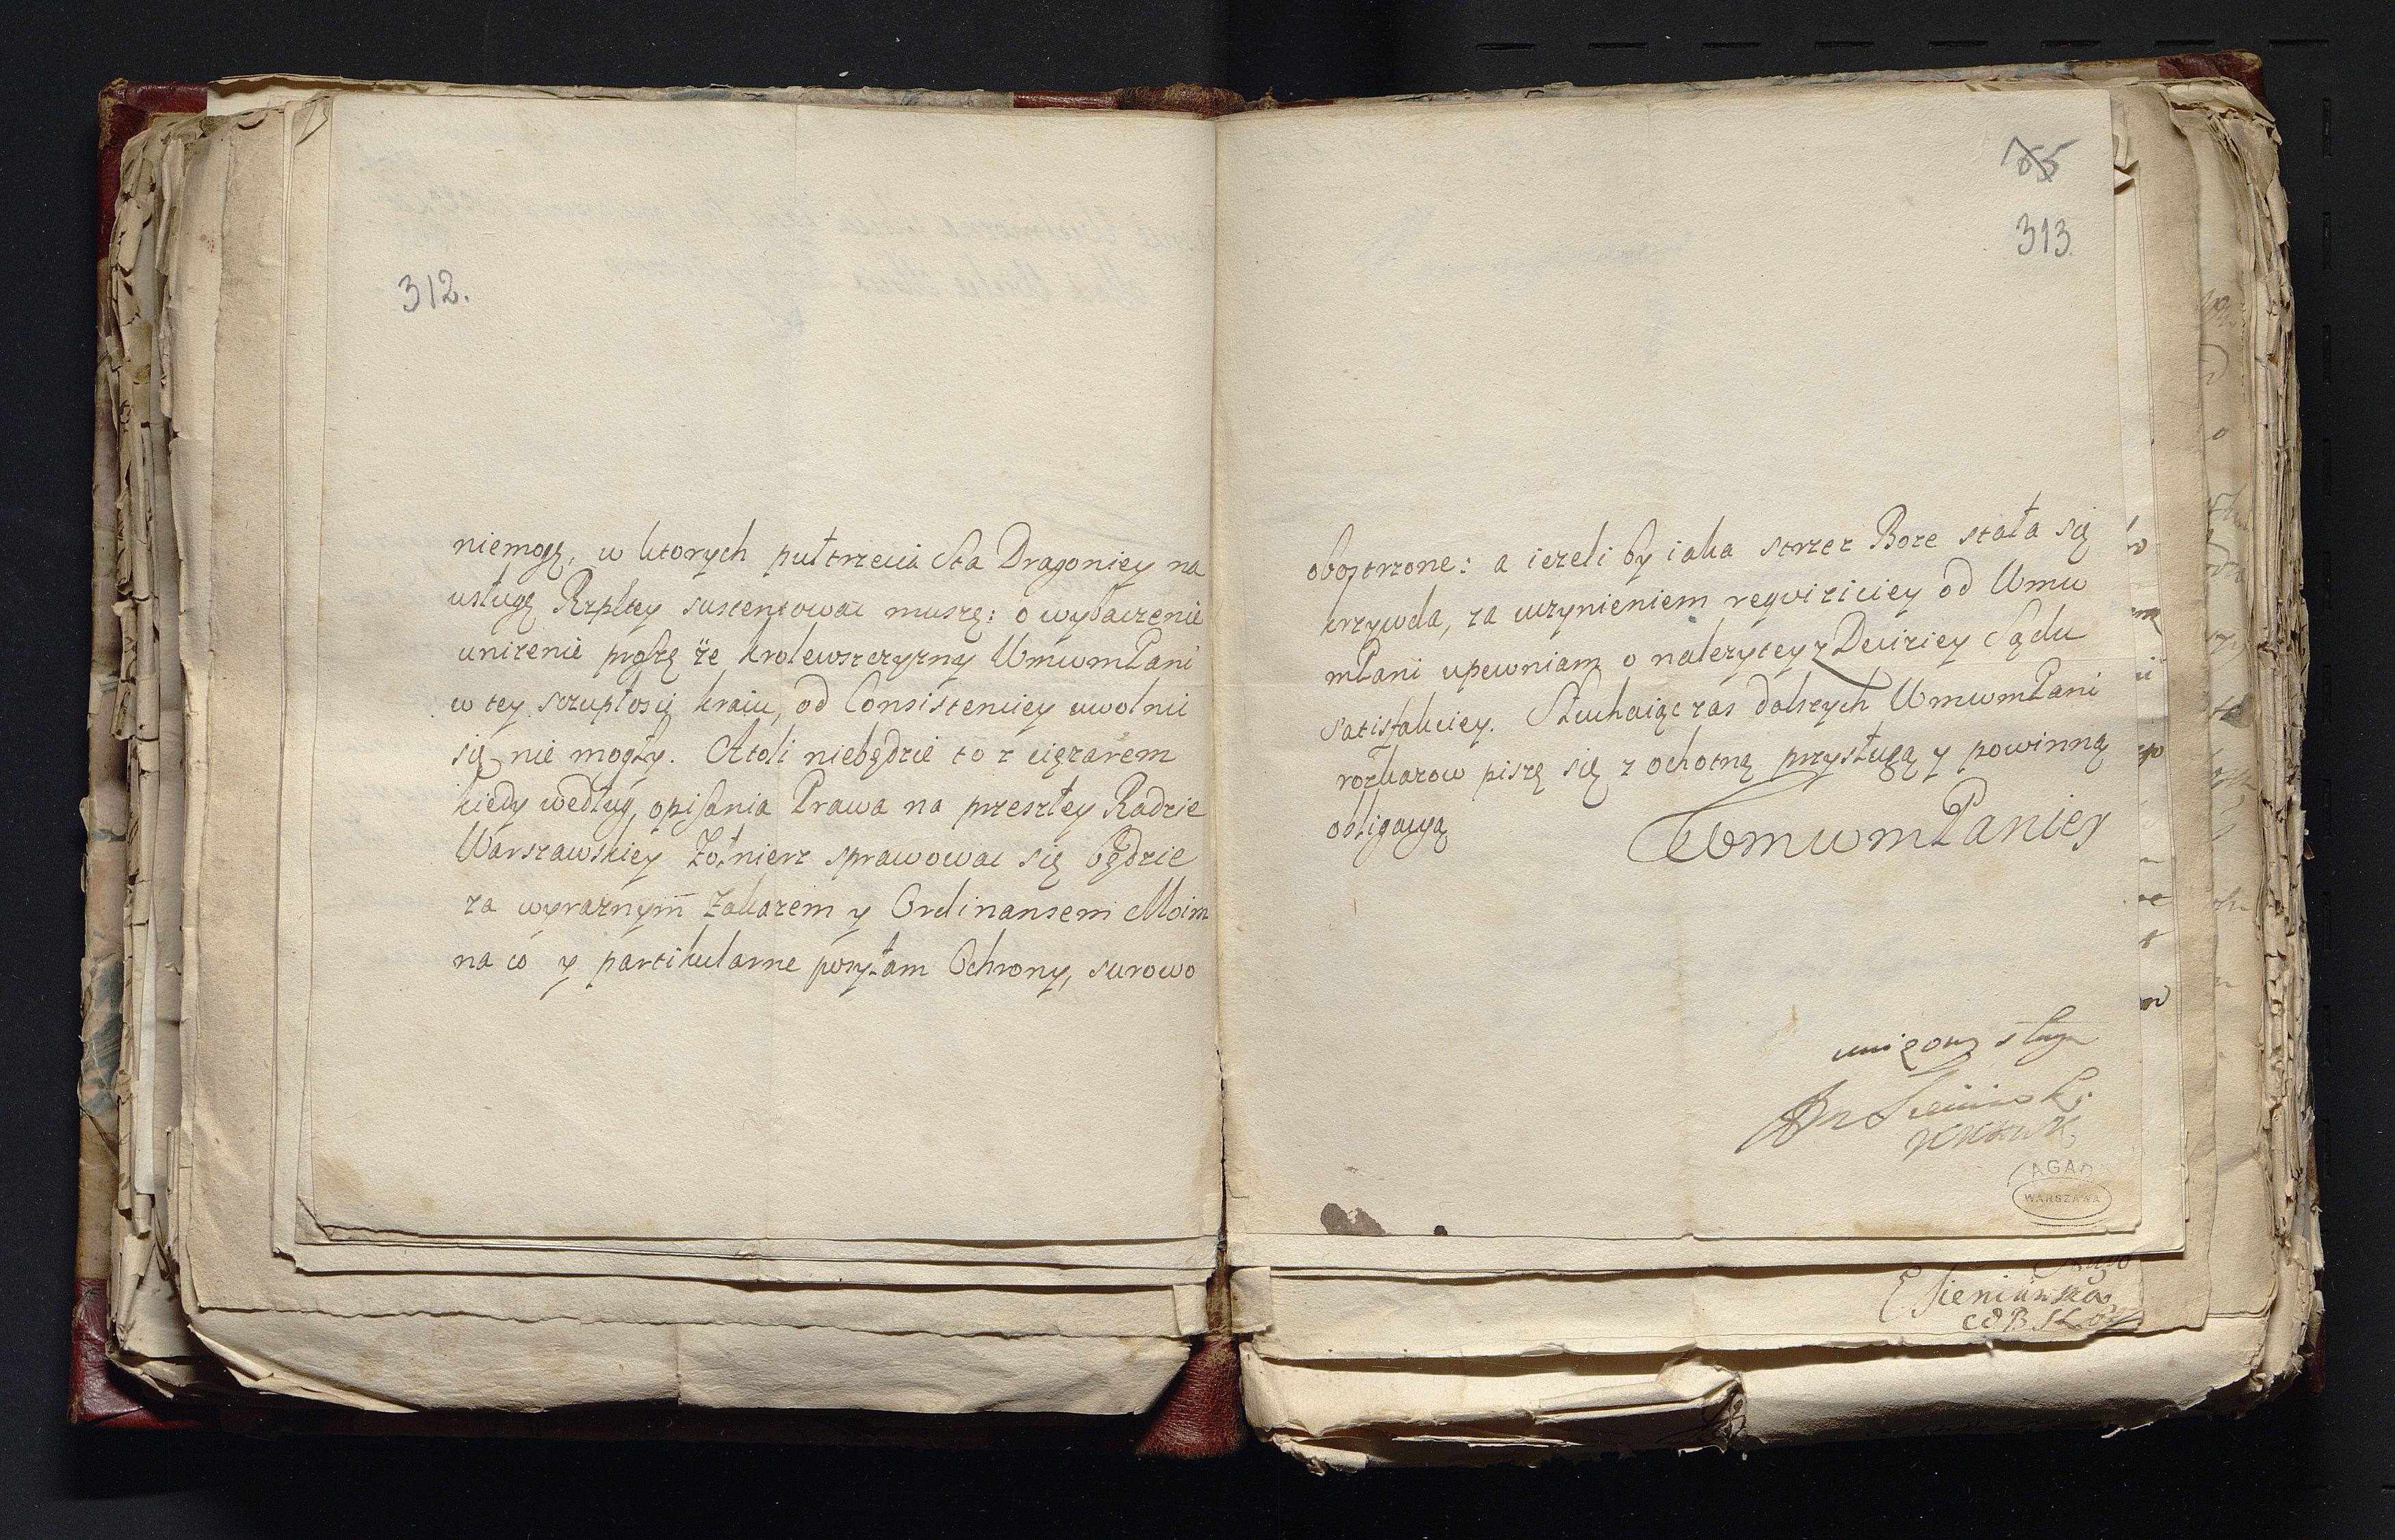 312.
niemogę, w ktorych pułtrzecia Sta Dragoniey na
usługę Rzpltey sustentowac muszę: o wybaczenie
unizenie proszę że krolewszczyzny WmwmPani
w tey szczupłosci kraiu, od Consistenciey uwolnić
się nie mogły. Atoli niebędzie to z ciężarem
kiedy według, opisania Prawa na przeszłey Radzie
Warszawskiey Żołnierz sprawowac się będzie
za wyraznym Zakazem y Ordinansem Moim
na co y partikularne posyłam Ochrony, surowo
65
313
obostrzone: a iezeli by iaka strzez Boze stała się
krzywda, za uczynieniem reqviziciey od Wmw
mPani upewniam o nalezytey z Deciziey Sądu
satisfakciey. Słuchaiąc zas dalszych WmwmPani
rozkazow piszę się z ochotną przysługą y powinną
obligacyą
WmwmPaniey
unizony sługa
Sieniawski
AGAD
WARSZAWA
ESieniawska